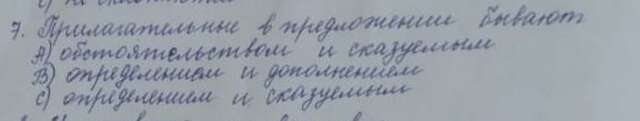 7. Прилагательные в предложении бывают
А) обстоятельством и сказуемым
В) определением и дополнением
С) определением и сказуемым